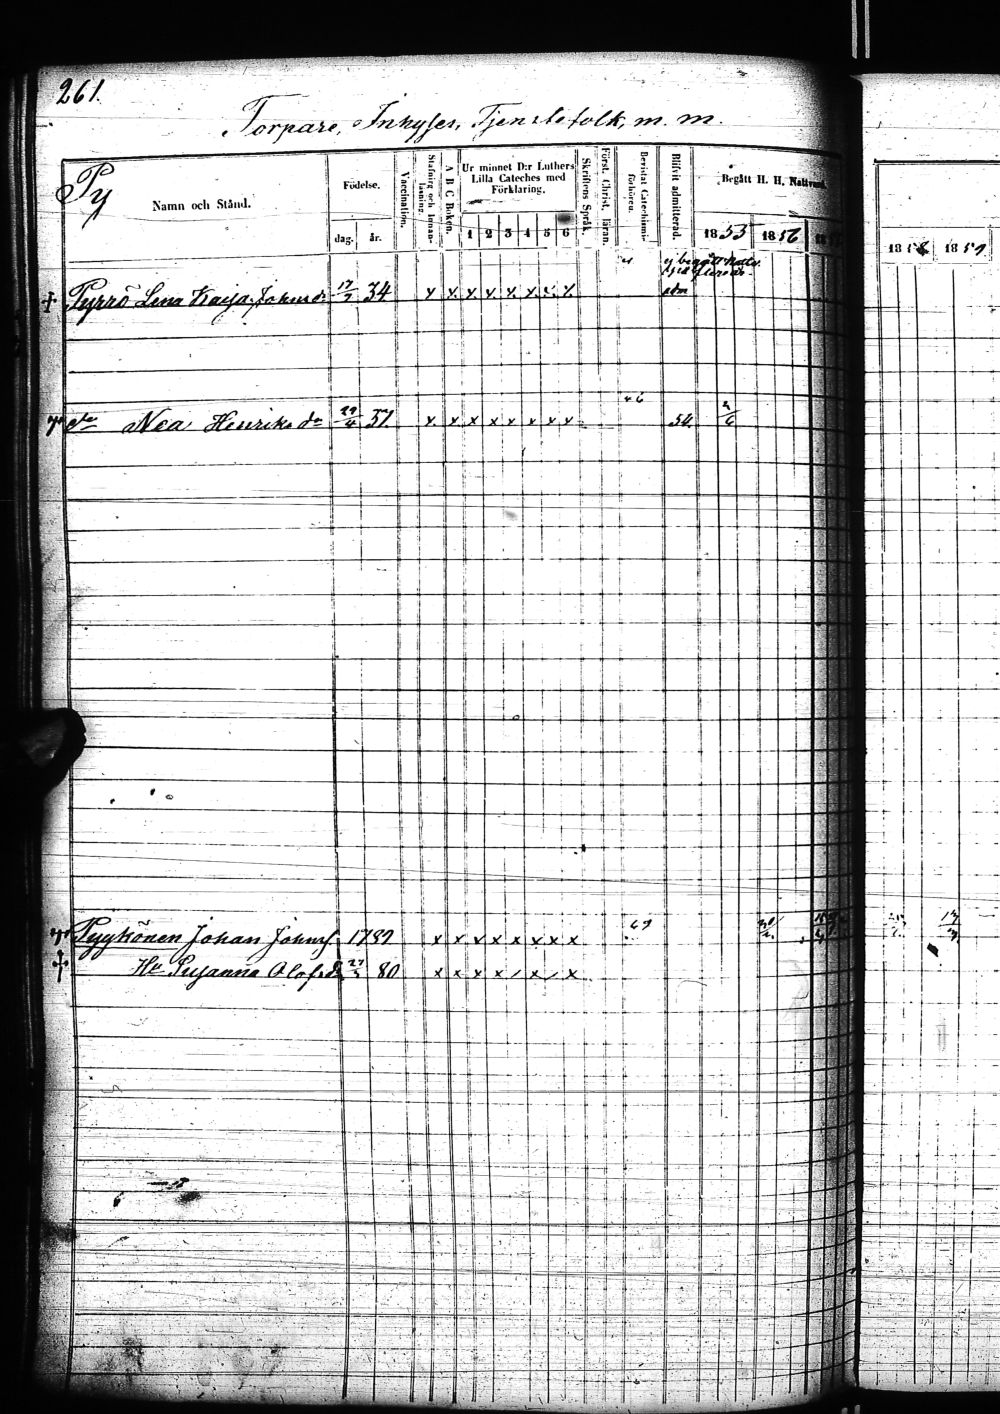 261.
Torpare, Inhyses, Tjenstefolk, m. m.
Py
Namn och Stånd.
Födelse.
dag. år.
Vaccination.
Stafning och Innanläsning.
A B C Boken.
Ur minnet D:r Luthers Lilla Cateches med Förklaring.
1 2 3 4 5 6
Skriftens Språk.
Först. Christ. läran.
Bevistat Catechismiförhören.
Blifvit admitterad.
Begått H. H. Nattvard.
1855 1856 1857
1858 1859
ej begått Nattv.
† Pyrrö Lena Kaija Johansdr 17/7 34 x x x x x x x x
adm
do Nea Henriksdr 29/4 37 x x x x x x x x 46 54
Pyykönen Johan Johansf. 1789 x x x x x x x x 69
† Hu Susanna Olofsdr 80 x x x x / x / x